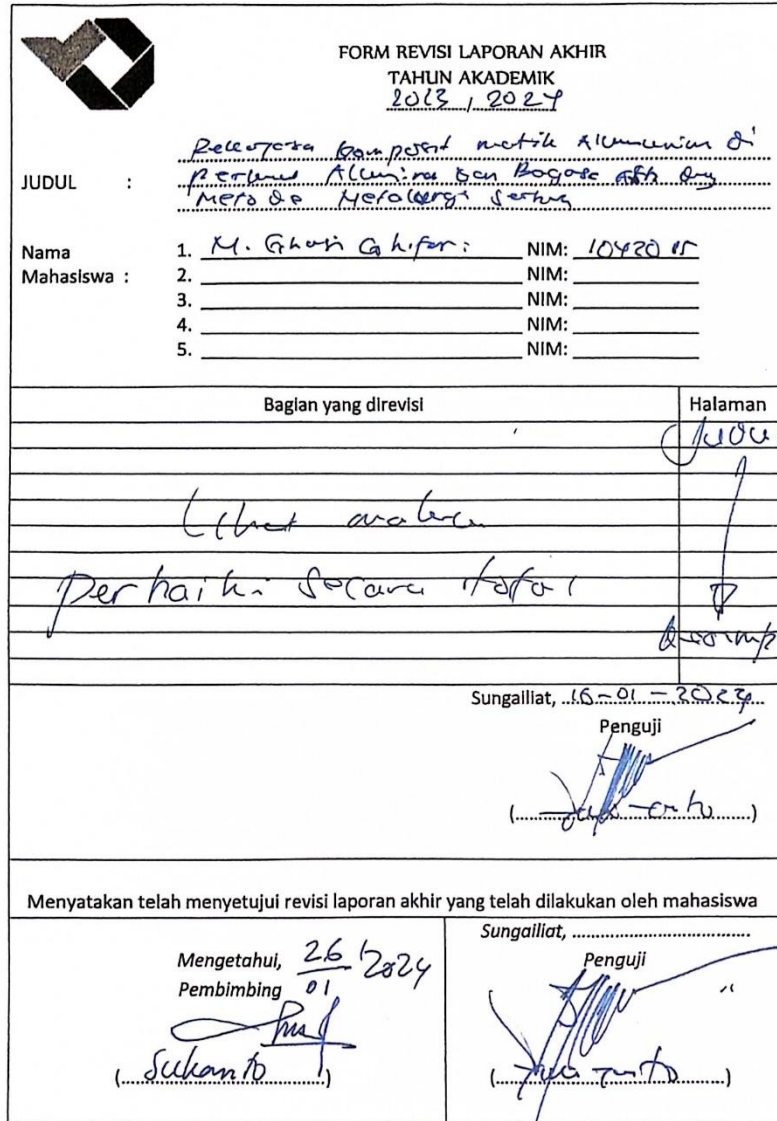 FORM REVISI LAPORAN AKHIR
TAHUN AKADEMIK
2023 / 2024
JUDUL :
Komposit matrik Alumunium di
Alumina dan Bagase Ash dng
Metode Metalurgi Serbuk
Nama Mahasiswa :
1. M. Ghozi Ghifari NIM: 1042015
2. NIM:
3. NIM:
4. NIM:
5. NIM:
Bagian yang direvisi Halaman
Judul
Lihat
Perbaiki secara total
Sungailiat, 16-01-2024
Penguji
Menyatakan telah menyetujui revisi laporan akhir yang telah dilakukan oleh mahasiswa
Mengetahui, 26/01 2024
Pembimbing
(Sukanto)
Sungailiat,
Penguji